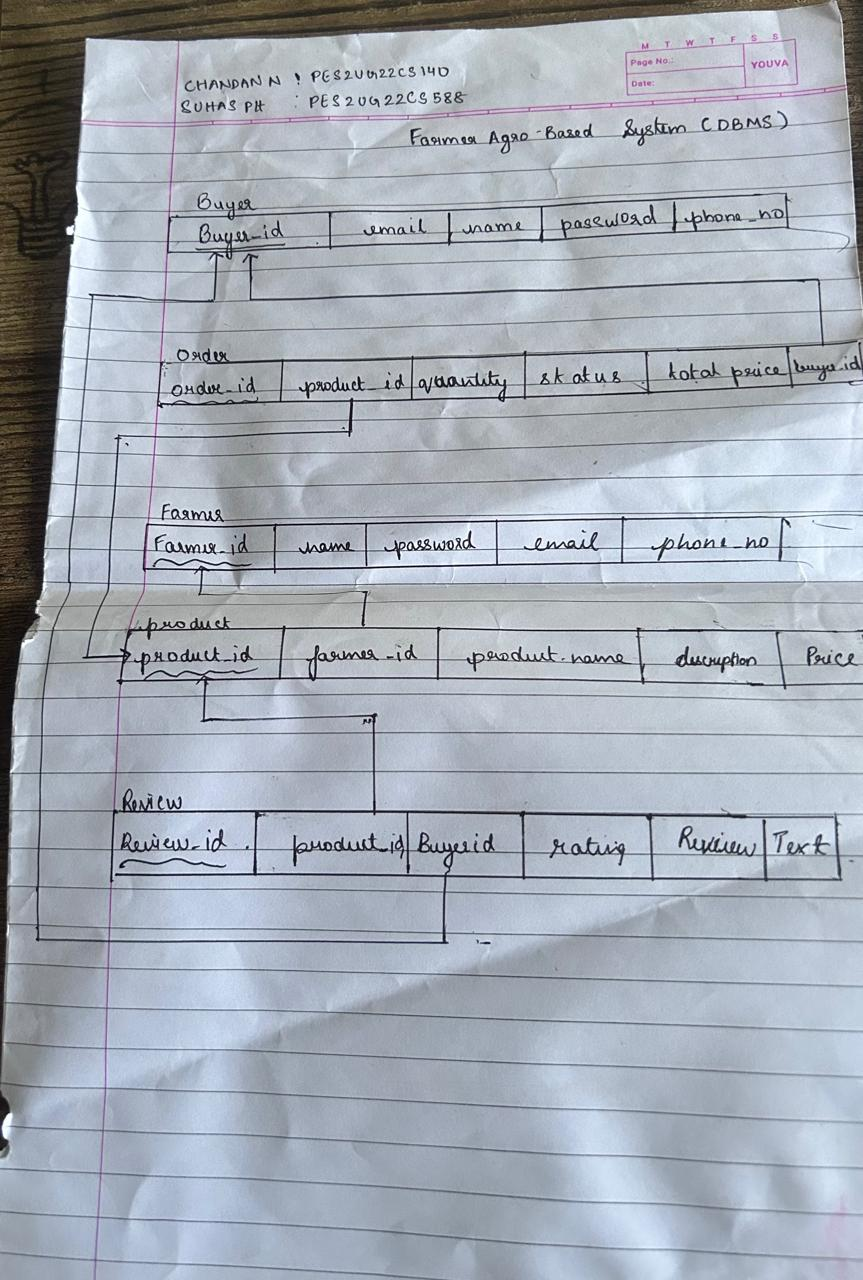 M T W T F S S
Page No.:
YOUVA
Date:
CHANDAN N : PES2UG22CS140
SUHAS PH : PES2UG22CS588
Farmer Agro-Based System (DBMS)
Buyer
Buyer_id email name password phone_no
Order
order_id product_id quantity status total price buyer_id
Farmer
Farmer_id name password email phone_no
product
product_id farmer_id product_name description Price
Review
Review_id product_id Buyer id rating Review Text